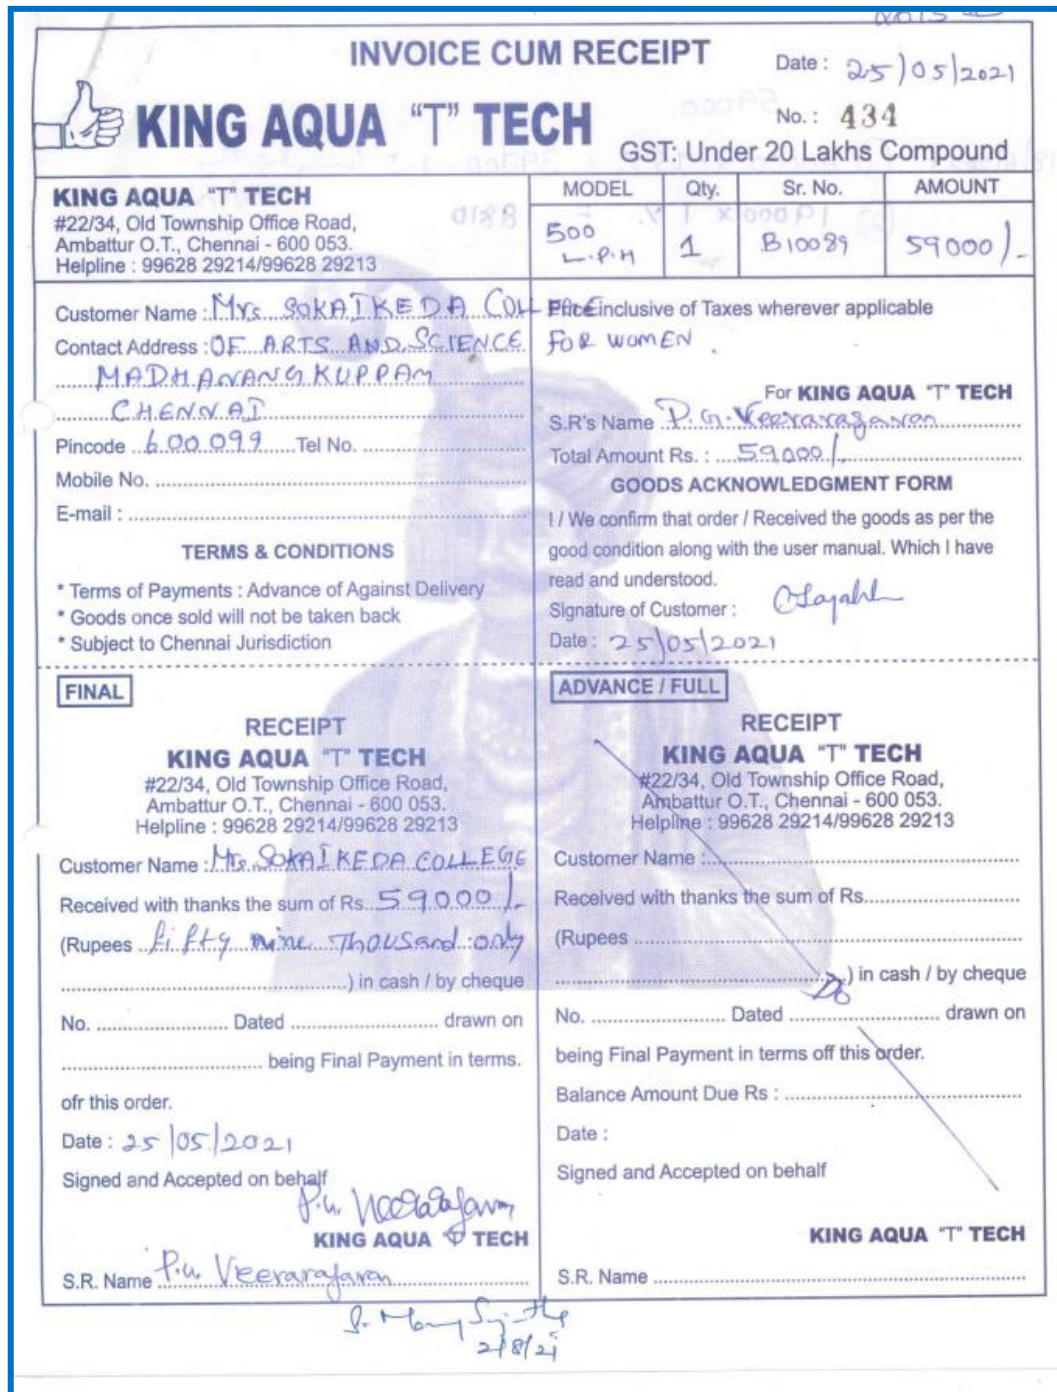 INVOICE CUM RECEIPT
Date : 25/05/2021
KING AQUA "T" TECH
No. : 434
GST: Under 20 Lakhs Compound
KING AQUA "T" TECH
#22/34, Old Township Office Road,
Ambattur O.T., Chennai - 600 053.
Helpline : 99628 29214/99628 29213
MODEL Qty. Sr. No. AMOUNT
500 L.P.H 1 B10089 59000/-
Customer Name : Mrs SOKAIKEDA COLLEGE
Contact Address : OF ARTS AND SCIENCE
FOR WOMEN.
MADHANANGKUPPAM
CHENNAI
Pincode 600 099 Tel No.
Mobile No.
E-mail :
TERMS & CONDITIONS
* Terms of Payments : Advance of Against Delivery
* Goods once sold will not be taken back
* Subject to Chennai Jurisdiction
Price inclusive of Taxes wherever applicable
For KING AQUA "T" TECH
S.R's Name P.G. Veeraragavan
Total Amount Rs. : 59000/-
GOODS ACKNOWLEDGMENT FORM
I / We confirm that order / Received the goods as per the
good condition along with the user manual. Which I have
read and understood.
Signature of Customer :
Date : 25/05/2021
FINAL
RECEIPT
KING AQUA "T" TECH
#22/34, Old Township Office Road,
Ambattur O.T., Chennai - 600 053.
Helpline : 99628 29214/99628 29213
Customer Name : Mrs. SOKAIKEDA COLLEGE
Received with thanks the sum of Rs. 59000/-
(Rupees fifty nine Thousand only
) in cash / by cheque
No. Dated drawn on
being Final Payment in terms.
ofr this order.
Date : 25/05/2021
Signed and Accepted on behalf
KING AQUA "T" TECH
S.R. Name
ADVANCE / FULL
RECEIPT
KING AQUA "T" TECH
#22/34, Old Township Office Road,
Ambattur O.T., Chennai - 600 053.
Helpline : 99628 29214/99628 29213
Customer Name :
Received with thanks the sum of Rs.
(Rupees
) in cash / by cheque
No. Dated drawn on
being Final Payment in terms off this order.
Balance Amount Due Rs :
Date :
Signed and Accepted on behalf
KING AQUA "T" TECH
S.R. Name
2/8/21